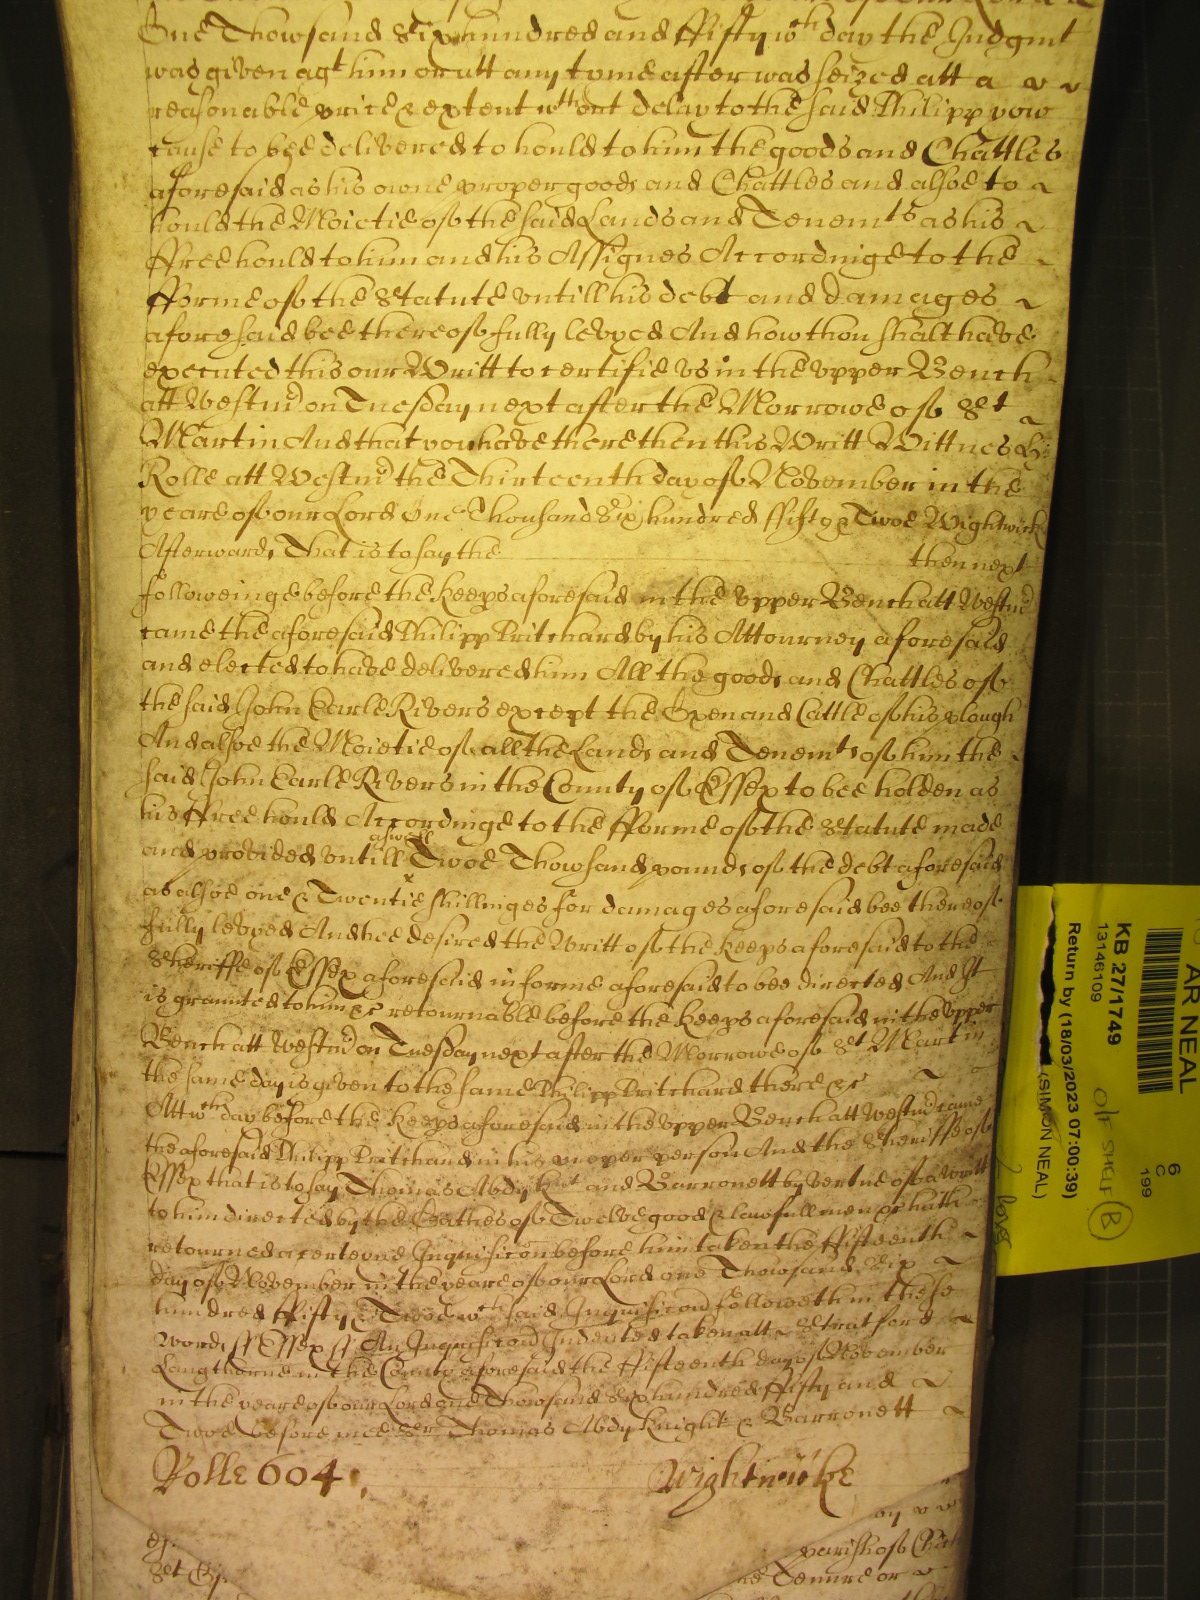 One Thowsand Six hundred and ffifty wch day the Judgmt
was given agt him or att any tyme after was seized att a
reasonable price & extent wthout delay to the said Philipp yow
cause to bee delivered to hould to him the goods and Chattles
aforesaid as his owne proper goods and Chattles and alsoe to
hould the Moietie of the said Lands and Tenemts as his
ffreehould to him and his Assignes Accordinge to the
fforme of the Statute vntill his debt and damages
aforesaid bee thereof fully levyed And how thou shalt have
executed this our Writt to certifie vs in the vpper Bench
att Westmr on Tuesday next after the Morrowe of St
Martin And that you have there then this Writt Wittnes H:
Rolle att Westmr the Thirteenth day of November in the
yeare of our Lord One Thousand Six hundred ffifty & Twoe Wightwick
Afterwards That is to say the then next
followeinge before the Keeps aforesaid in the vpper Bench att Westmr
came the aforesaid Philipp Pritchard by his Attourney aforesaid
and elected to have delivered him All the goods and Chattles of
the said John Earle Rivers except the Oxen and Cattle of his plough
And alsoe the Moietie of all the Lands and Tenemts of him the
said John Earle Rivers in the County of Essex to bee holden as
his ffreehould Accordinge to the fforme of the Statute made
aswell
and provided vntill Twoe Thowsand pounds of the debt aforesaid
as alsoe one & Twentie shillinges for damages aforesaid bee thereof
fully levyed And hee desired the Writt of the Keeps aforesaid to the
Sheriffe of Essex aforesaid in forme aforesaid to bee directed And It
is graunted to him &c retournable before the Keeps aforesaid in the vpper
Bench att Westmr on Tuesday next after the Morrowe of St Martin
the same day is given to the same Philipp Pritchard there &c
Att wch day before the Keeps aforesaid in the vpper Bench att Westmr came
the aforesaid Philipp Pritchard in his proper person And the Sheriffe of
Essex that is to say Thomas Abdy Knt and Barronett by vertue of a Writt
to him directed by the Oathes of Twelve good & lawfull men &c hath
retourned a certeyne Inquisicon before him taken the ffifteenth
day of November in the yeare of our Lord one Thowsand Six
hundred ffifty & Twoe wch said Inquisicon followeth in these
words ss Essex ss An Inquisicon Indented taken att Stratford
Langthorne in the County aforesaid the ffifteenth day of November
in the yeare of our Lord one Thowsand Six hundred ffifty and
Twoe before mee Sr Thomas Abdy Knight & Barronett
Rolle 604 Wightwicke
parish of
Tenure or
AR NEAL
KB 27/1749
13146109
Return by (18/03/2023 07:00:39)
(SIMON NEAL)
6
C
199
O/F SHELF B